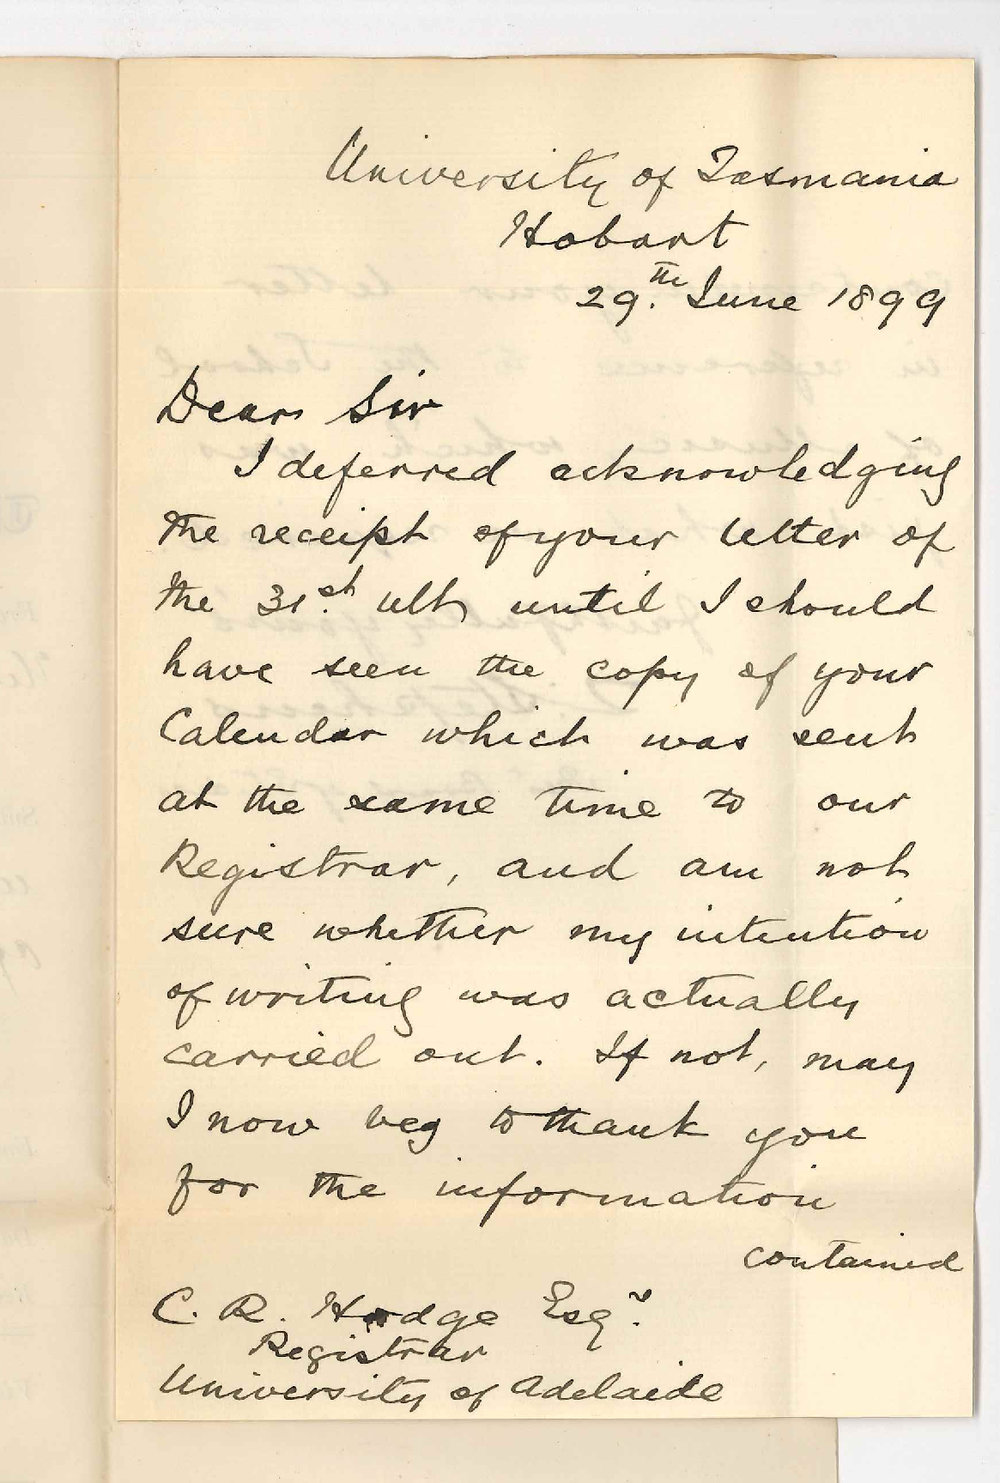 University of Tasmania
Hobart
29.th June 1899
Dear Sir
I deferred acknowledging
the receipt of your letter of
the 31st. ult, until I should
have seen the copy of your
Calendar which was sent
at the same time to our
Registrar, and am not
sure whether my intention
of writing was actually
carried out. If not, may
I now beg to thank you
for the information
contained
C. R. Hodge Esqr.
Registrar
University of Adelaide